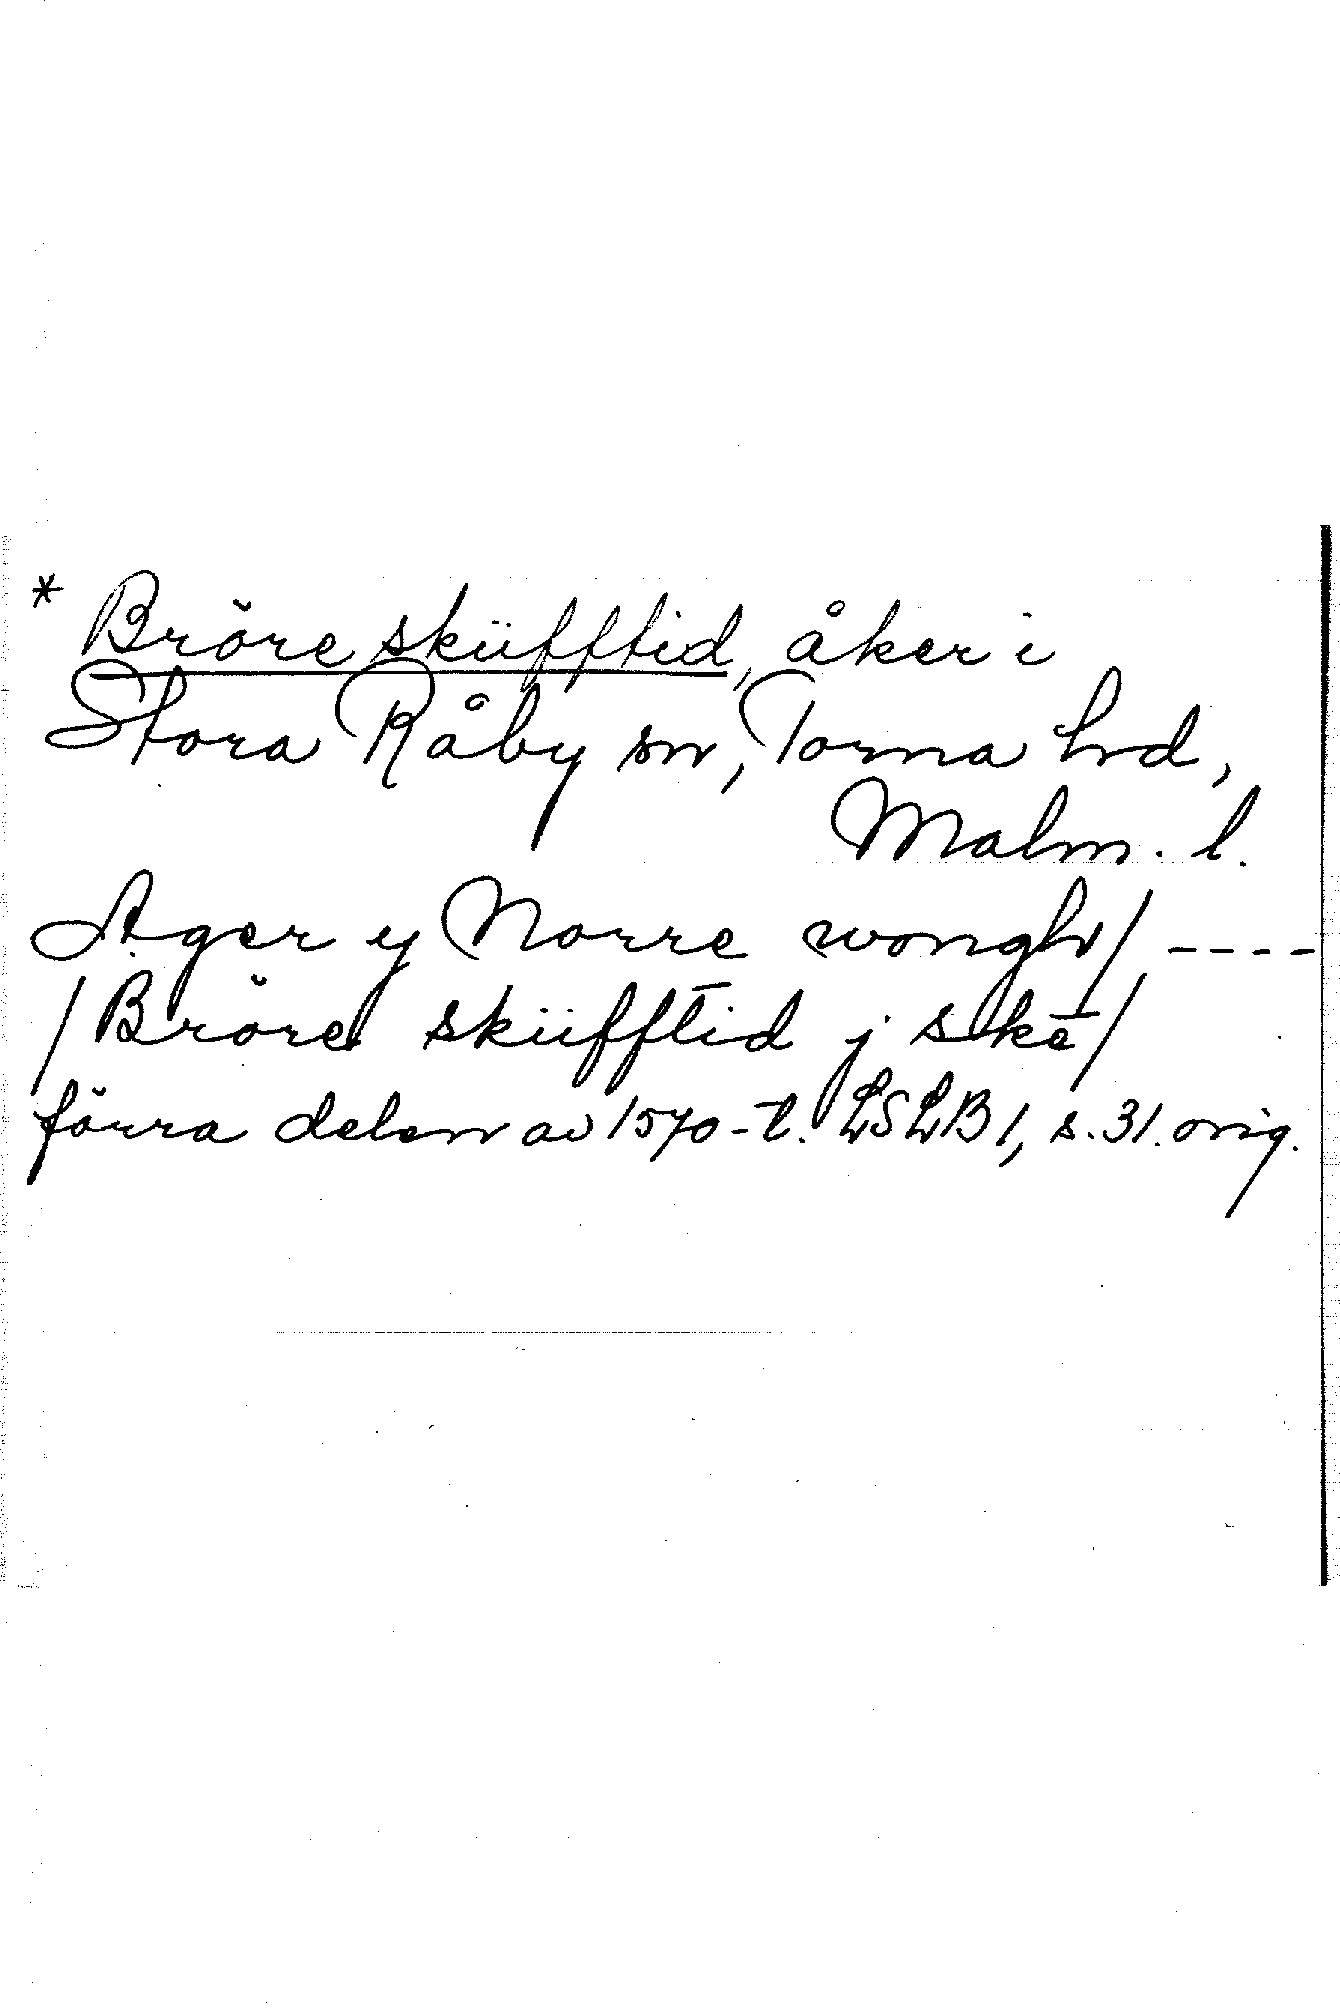 * Bröre sküfftid, åker i
Stora Råby sn, Torna hd,
Malm. l.
Ager y Norre wongh/ ----
/Bröre sküfftid j skē/
förra delen av 1570-t. LSLB 1, s. 31. orig.